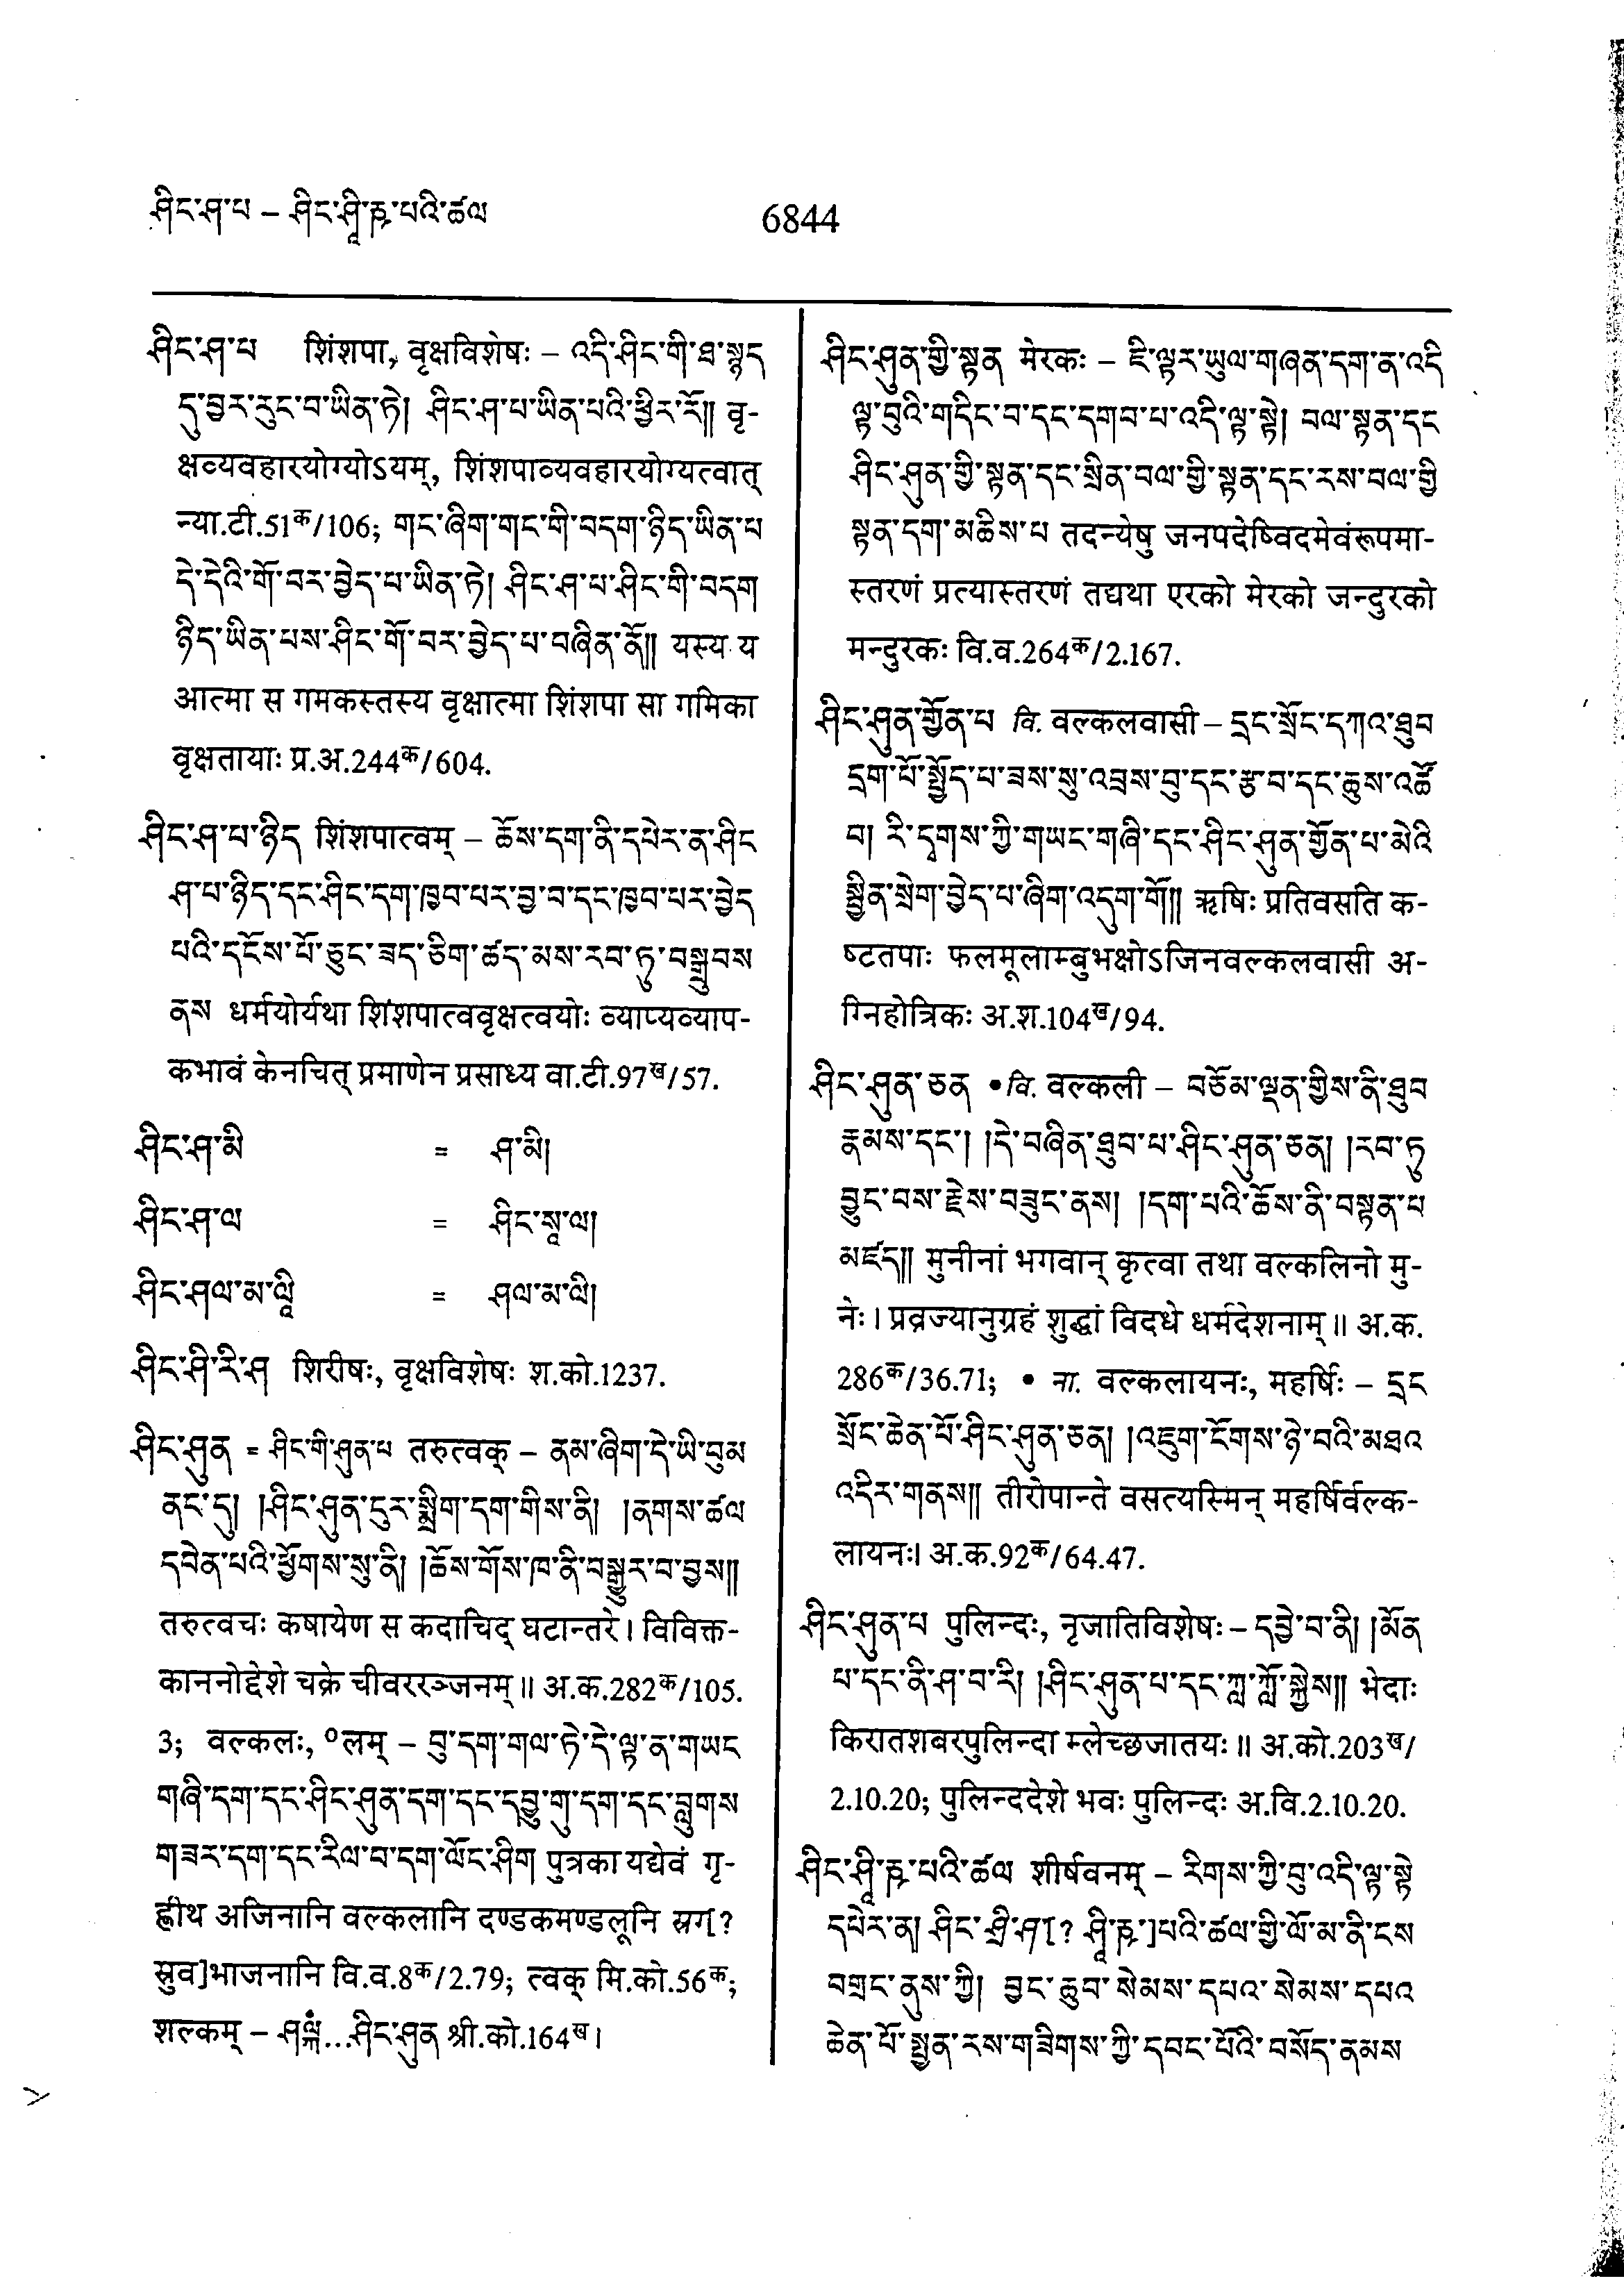 ཤིང་ཤ་པ – ཤིང་ཤཱིརྵ་པའི་ཚལ
6844
ཤིང་ཤ་པ शिंशपा, वृक्षविशेषः – འདི་ཤིང་གི་ཐ་སྙད
དུ་བྱར་རུང་བ་ཡིན་ཏེ། ཤིང་ཤ་པ་ཡིན་པའི་ཕྱིར་རོ།། वृ-
क्षव्यवहारयोग्योऽयम्, शिंशपाव्यवहारयोग्यत्वात्
न्या.टी.51क/106; གང་ཞིག་གང་གི་བདག་ཉིད་ཡིན་པ
དེ་དེའི་གོ་བར་བྱེད་པ་ཡིན་ཏེ། ཤིང་ཤ་པ་ཤིང་གི་བདག
ཉིད་ཡིན་པས་ཤིང་གོ་བར་བྱེད་པ་བཞིན་ནོ།། यस्य य
आत्मा स गमकस्तस्य वृक्षात्मा शिंशपा सा गमिका
वृक्षतायाः प्र.अ.244क/604.
ཤིང་ཤ་པ་ཉིད शिंशपात्वम् – ཆོས་དག་ནི་དཔེར་ན་ཤིང
ཤ་པ་ཉིད་དང་ཤིང་དག་ཁྱབ་པར་བྱ་བ་དང་ཁྱབ་པར་བྱེད
པའི་དངོས་པོ་ཅུང་ཟད་ཅིག་ཚད་མས་རབ་ཏུ་བསྒྲུབས
ནས धर्मयोर्यथा शिंशपात्ववृक्षत्वयोः व्याप्यव्याप-
कभावं केनचित् प्रमाणेन प्रसाध्य वा.टी.97ख/57.
ཤིང་ཤ་མི = ཤ་མི།
ཤིང་ཤ་ལ = ཤིང་སཱ་ལ།
ཤིང་ཤལ་མ་ལཱི = ཤལ་མ་ལི།
ཤིང་ཤི་རི་ཤ शिरीषः, वृक्षविशेषः श.को.1237.
ཤིང་ཤུན = ཤིང་གི་ཤུན་པ तरुत्वक् – ནམ་ཞིག་དེ་ཡི་བུམ
ནང་དུ། །ཤིང་ཤུན་དུར་སྨྲིག་དག་གིས་ནི། །ནགས་ཚལ
དབེན་པའི་ཕྱོགས་སུ་ནི། །ཆོས་གོས་ཁ་ནི་བསྒྱུར་བ་བྱས།།
तरुत्वचः कषायेण स कदाचिद् घटान्तरे। विविक्त-
काननोद्देशे चक्रे चीवररञ्जनम्॥ अ.क.282क/105.
3; वल्कलः, ०लम् – བུ་དག་གལ་ཏེ་དེ་ལྟ་ན་གཡང
གཞི་དག་དང་ཤིང་ཤུན་དག་དང་དབྱུ་གུ་དག་དང་བླུགས
གཟར་དག་དང་རིལ་བ་དག་ལོང་ཤིག पुत्रका यद्येवं गृ-
ह्णीथ अजिनानि वल्कलानि दण्डकमण्डलूनि स्रग[?
स्रुव]भाजनानि वि.व.8क/2.79; त्वक् मि.को.56क;
शल्कम् – ཤལྐཾ...ཤིང་ཤུན श्री.को.164ख।
ཤིང་ཤུན་གྱི་སྟན मेरकः – ཇི་ལྟར་ཡུལ་གཞན་དག་ན་འདི
ལྟ་བུའི་གདིང་བ་དང་དགབ་པ་འདི་ལྟ་སྟེ། བལ་སྟན་དང
ཤིང་ཤུན་གྱི་སྟན་དང་སྲིན་བལ་གྱི་སྟན་དང་རས་བལ་གྱི
སྟན་དག་མཆིས་པ तदन्येषु जनपदेष्विदमेवंरूपमा-
स्तरणं प्रत्यास्तरणं तद्यथा एरको मेरको जन्दुरको
मन्दुरकः वि.व.264क/2.167.
ཤིང་ཤུན་གྱོན་པ वि. वल्कलवासी – དྲང་སྲོང་དཀའ་ཐུབ
དྲག་པོ་སྤྱོད་པ་ཟས་སུ་འབྲས་བུ་དང་རྩ་བ་དང་ཆུས་འཚོ
བ། རི་དྭགས་ཀྱི་གཡང་གཞི་དང་ཤིང་ཤུན་གྱོན་པ་མེའི
སྦྱིན་སྲེག་བྱེད་པ་ཞིག་འདུག་གོ།། ऋषिः प्रतिवसति क-
ष्टतपाः फलमूलाम्बुभक्षोऽजिनवल्कलवासी अ-
ग्निहोत्रिकः अ.श.104ख/94.
ཤིང་ཤུན་ཅན •वि. वल्कली – བཅོམ་ལྡན་གྱིས་ནི་ཐུབ
རྣམས་དང་། །དེ་བཞིན་ཐུབ་པ་ཤིང་ཤུན་ཅན། །རབ་ཏུ
བྱུང་བས་རྗེས་བཟུང་ནས། །དག་པའི་ཆོས་ནི་བསྟན་པ
མཛད།། मुनीनां भगवान् कृत्वा तथा वल्कलिनो मु-
नेः। प्रव्रज्यानुग्रहं शुद्धां विदधे धर्मदेशनाम्॥ अ.क.
286क/36.71; • ना. वल्कलायनः, महर्षिः – དྲང
སྲོང་ཆེན་པོ་ཤིང་ཤུན་ཅན། །འཇུག་ངོགས་ཉེ་བའི་མཐའ
འདིར་གནས།། तीरोपान्ते वसत्यस्मिन् महर्षिर्वल्क-
लायनः। अ.क.92क/64.47.
ཤིང་ཤུན་པ पुलिन्दः, नृजातिविशेषः – དབྱེ་བ་ནི། །མོན
པ་དང་ནི་ཤ་བ་རི། །ཤིང་ཤུན་པ་དང་ཀླ་ཀློ་སྐྱེས།། भेदाः
किरातशबरपुलिन्दा म्लेच्छजातयः॥ अ.को.203ख/
2.10.20; पुलिन्ददेशे भवः पुलिन्दः अ.वि.2.10.20.
ཤིང་ཤཱིརྵ་པའི་ཚལ शीर्षवनम् – རིགས་ཀྱི་བུ་འདི་ལྟ་སྟེ
དཔེར་ན། ཤིང་ཤྲི་ཤ[? ཤཱིརྵ་]པའི་ཚལ་གྱི་ལོ་མ་ནི་ངས
བགྲང་ནུས་ཀྱི། བྱང་ཆུབ་སེམས་དཔའ་སེམས་དཔའ
ཆེན་པོ་སྤྱན་རས་གཟིགས་ཀྱི་དབང་པོའི་བསོད་ནམས